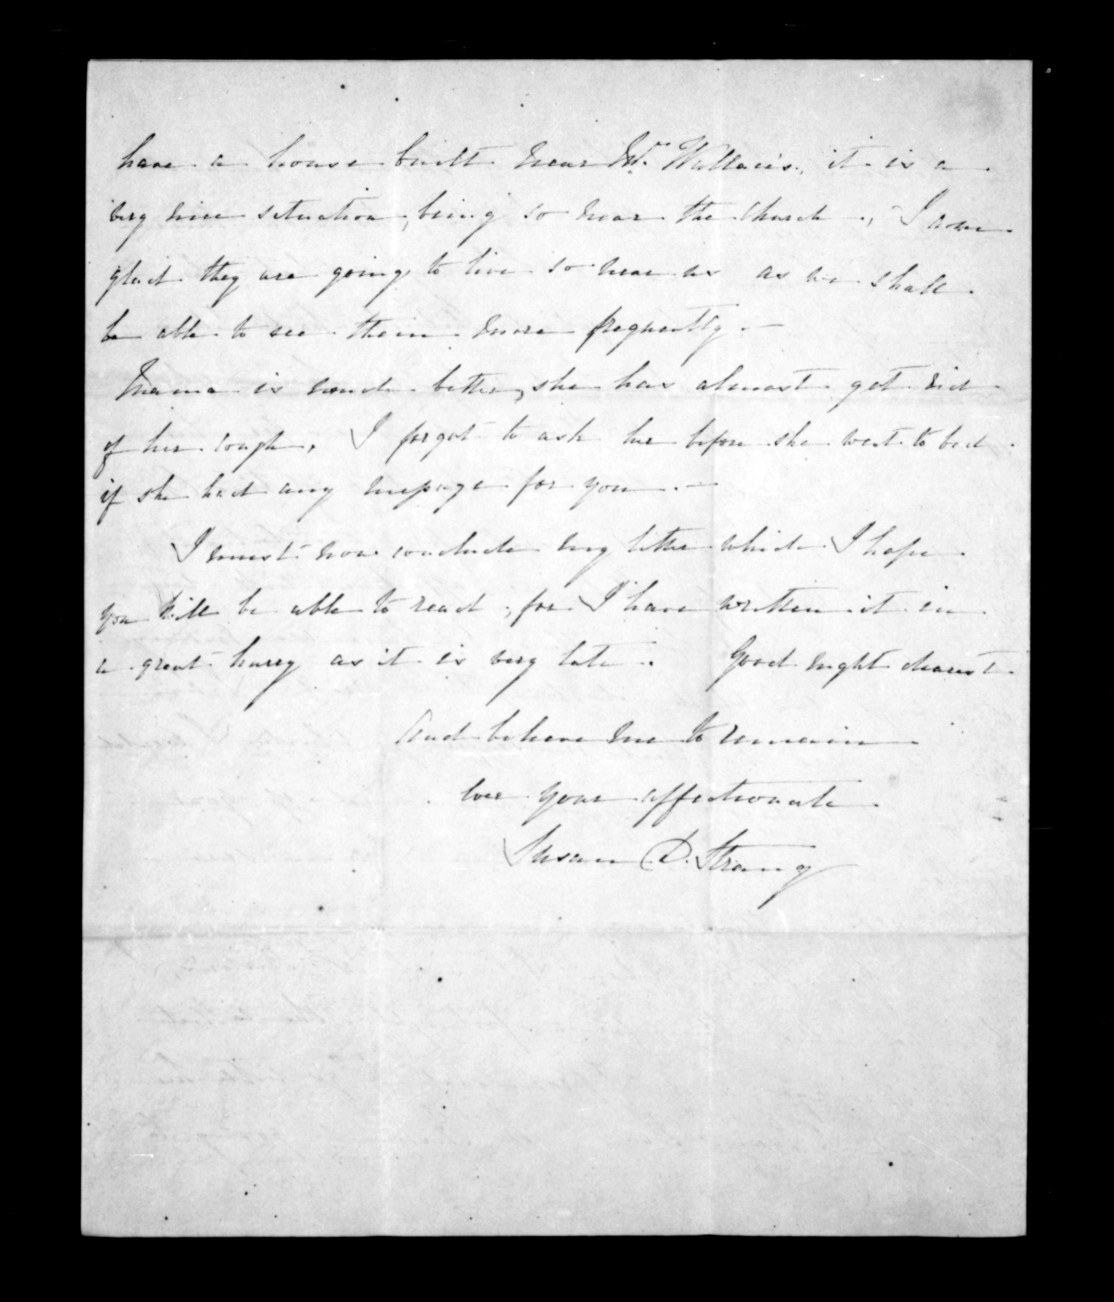 have a house built near Mr. Wallace's, it is a
very nice situation, being so near the Church, I am
glad they are going to live so near us as we shall
be able to see them more frequently. —
Mama is much better, she has almost got rid
of her cough, I forgot to ask her before she went to bed
if she had any message for you. —
I must now conclude my letter which I hope
you will be able to read, for I have written it in
a great hurry as it is very late. Good night dearest
And believe me to remain
Ever your affectionate
Susan D. Strang